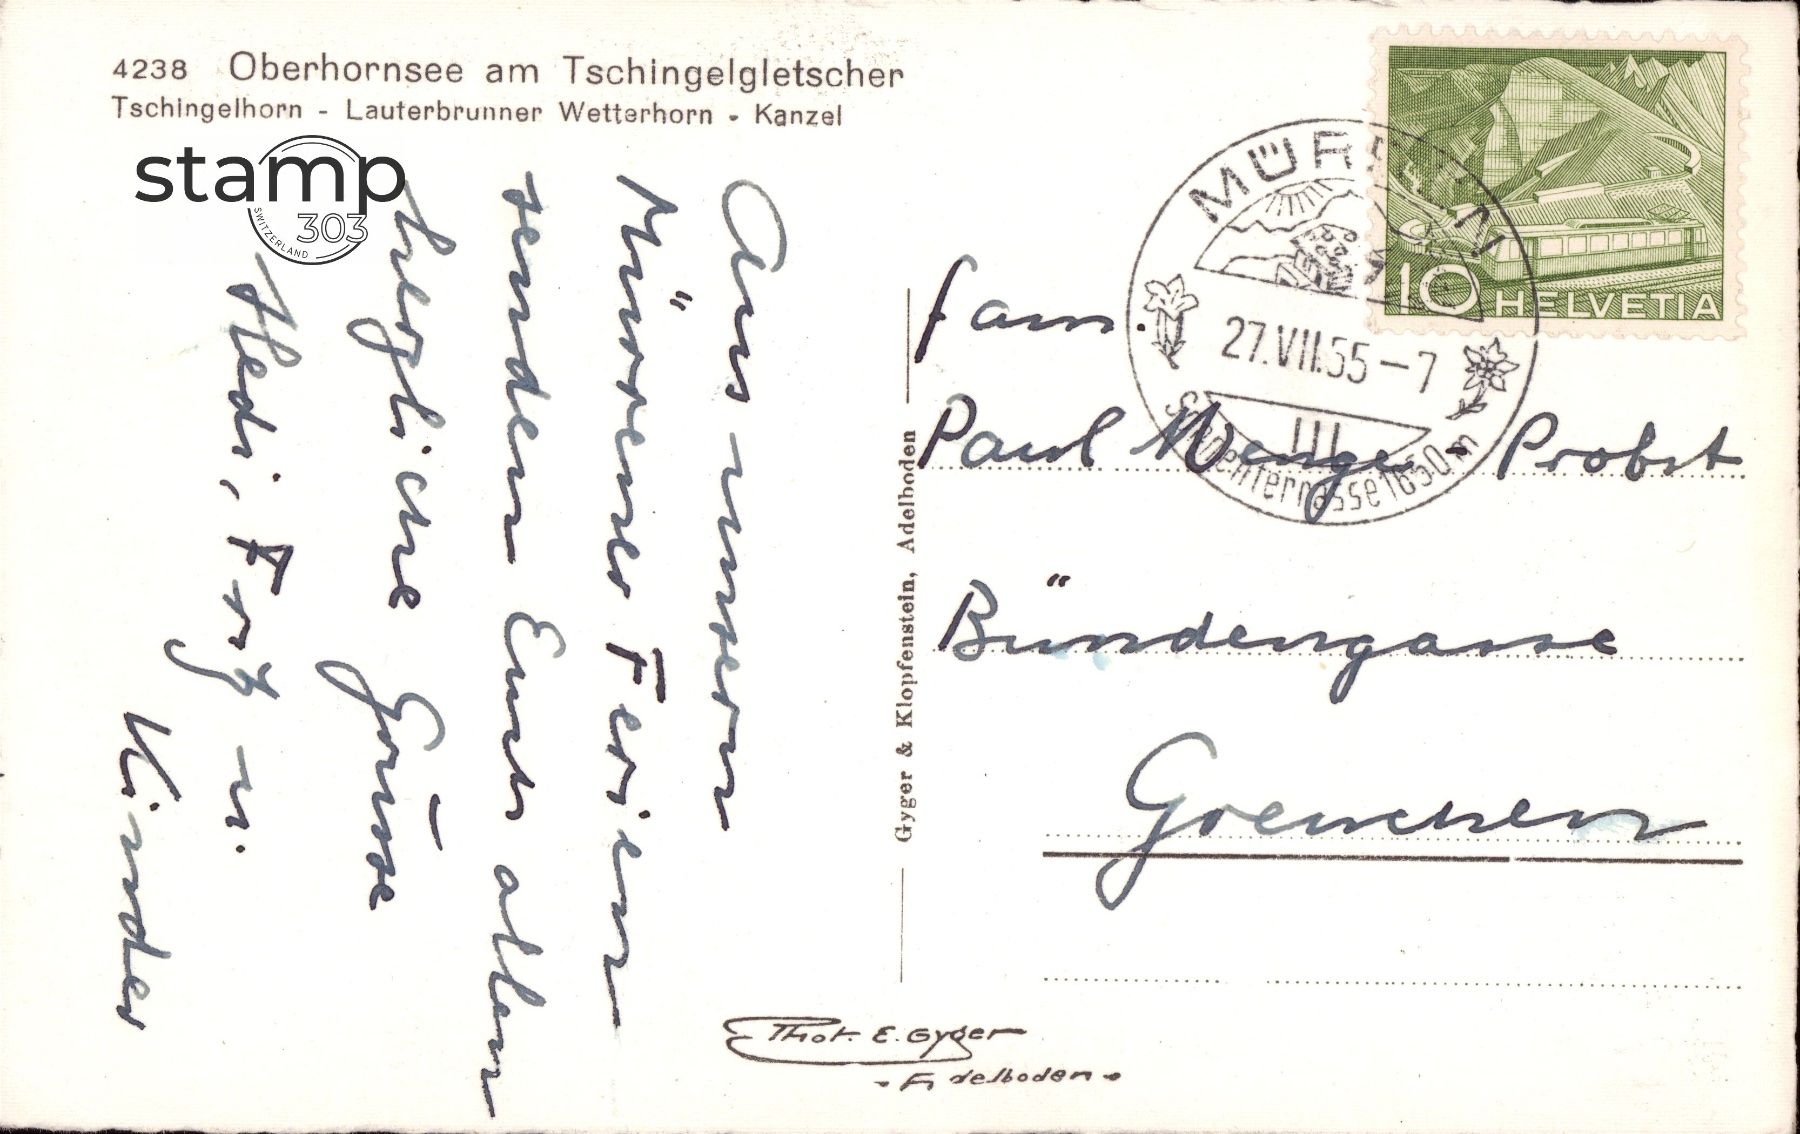 4238 Oberhornsee am Tschingelgletscher
Tschingelhorn - Lauterbrunner Wetterhorn - Kanzel
stamp
303
SWITZERLAND
Aus unsern
Mürrener Ferien
senden Euch allen
herzliche Grüsse
Hedi, Fritz u.
Kinder
Gyger & Klopfenstein, Adelboden
Phot. E. Gyger
- Adelboden -
MÜRREN
27.VII.55-7
Sonnenterrasse 1650 m
10 HELVETIA
Fam.
Paul Wenge - Probst
Bündengasse
Grenchen